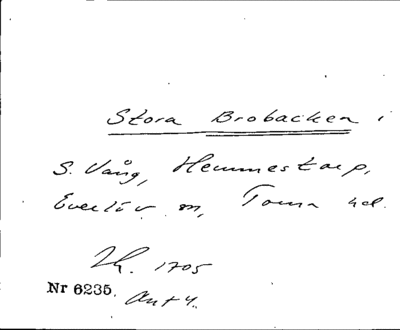 Stora Brobacken i
S. Vång, Hemmestorp,
Everlöv sn, Torna hd.
Lh. 1705
Nr 6235. Akt 4.